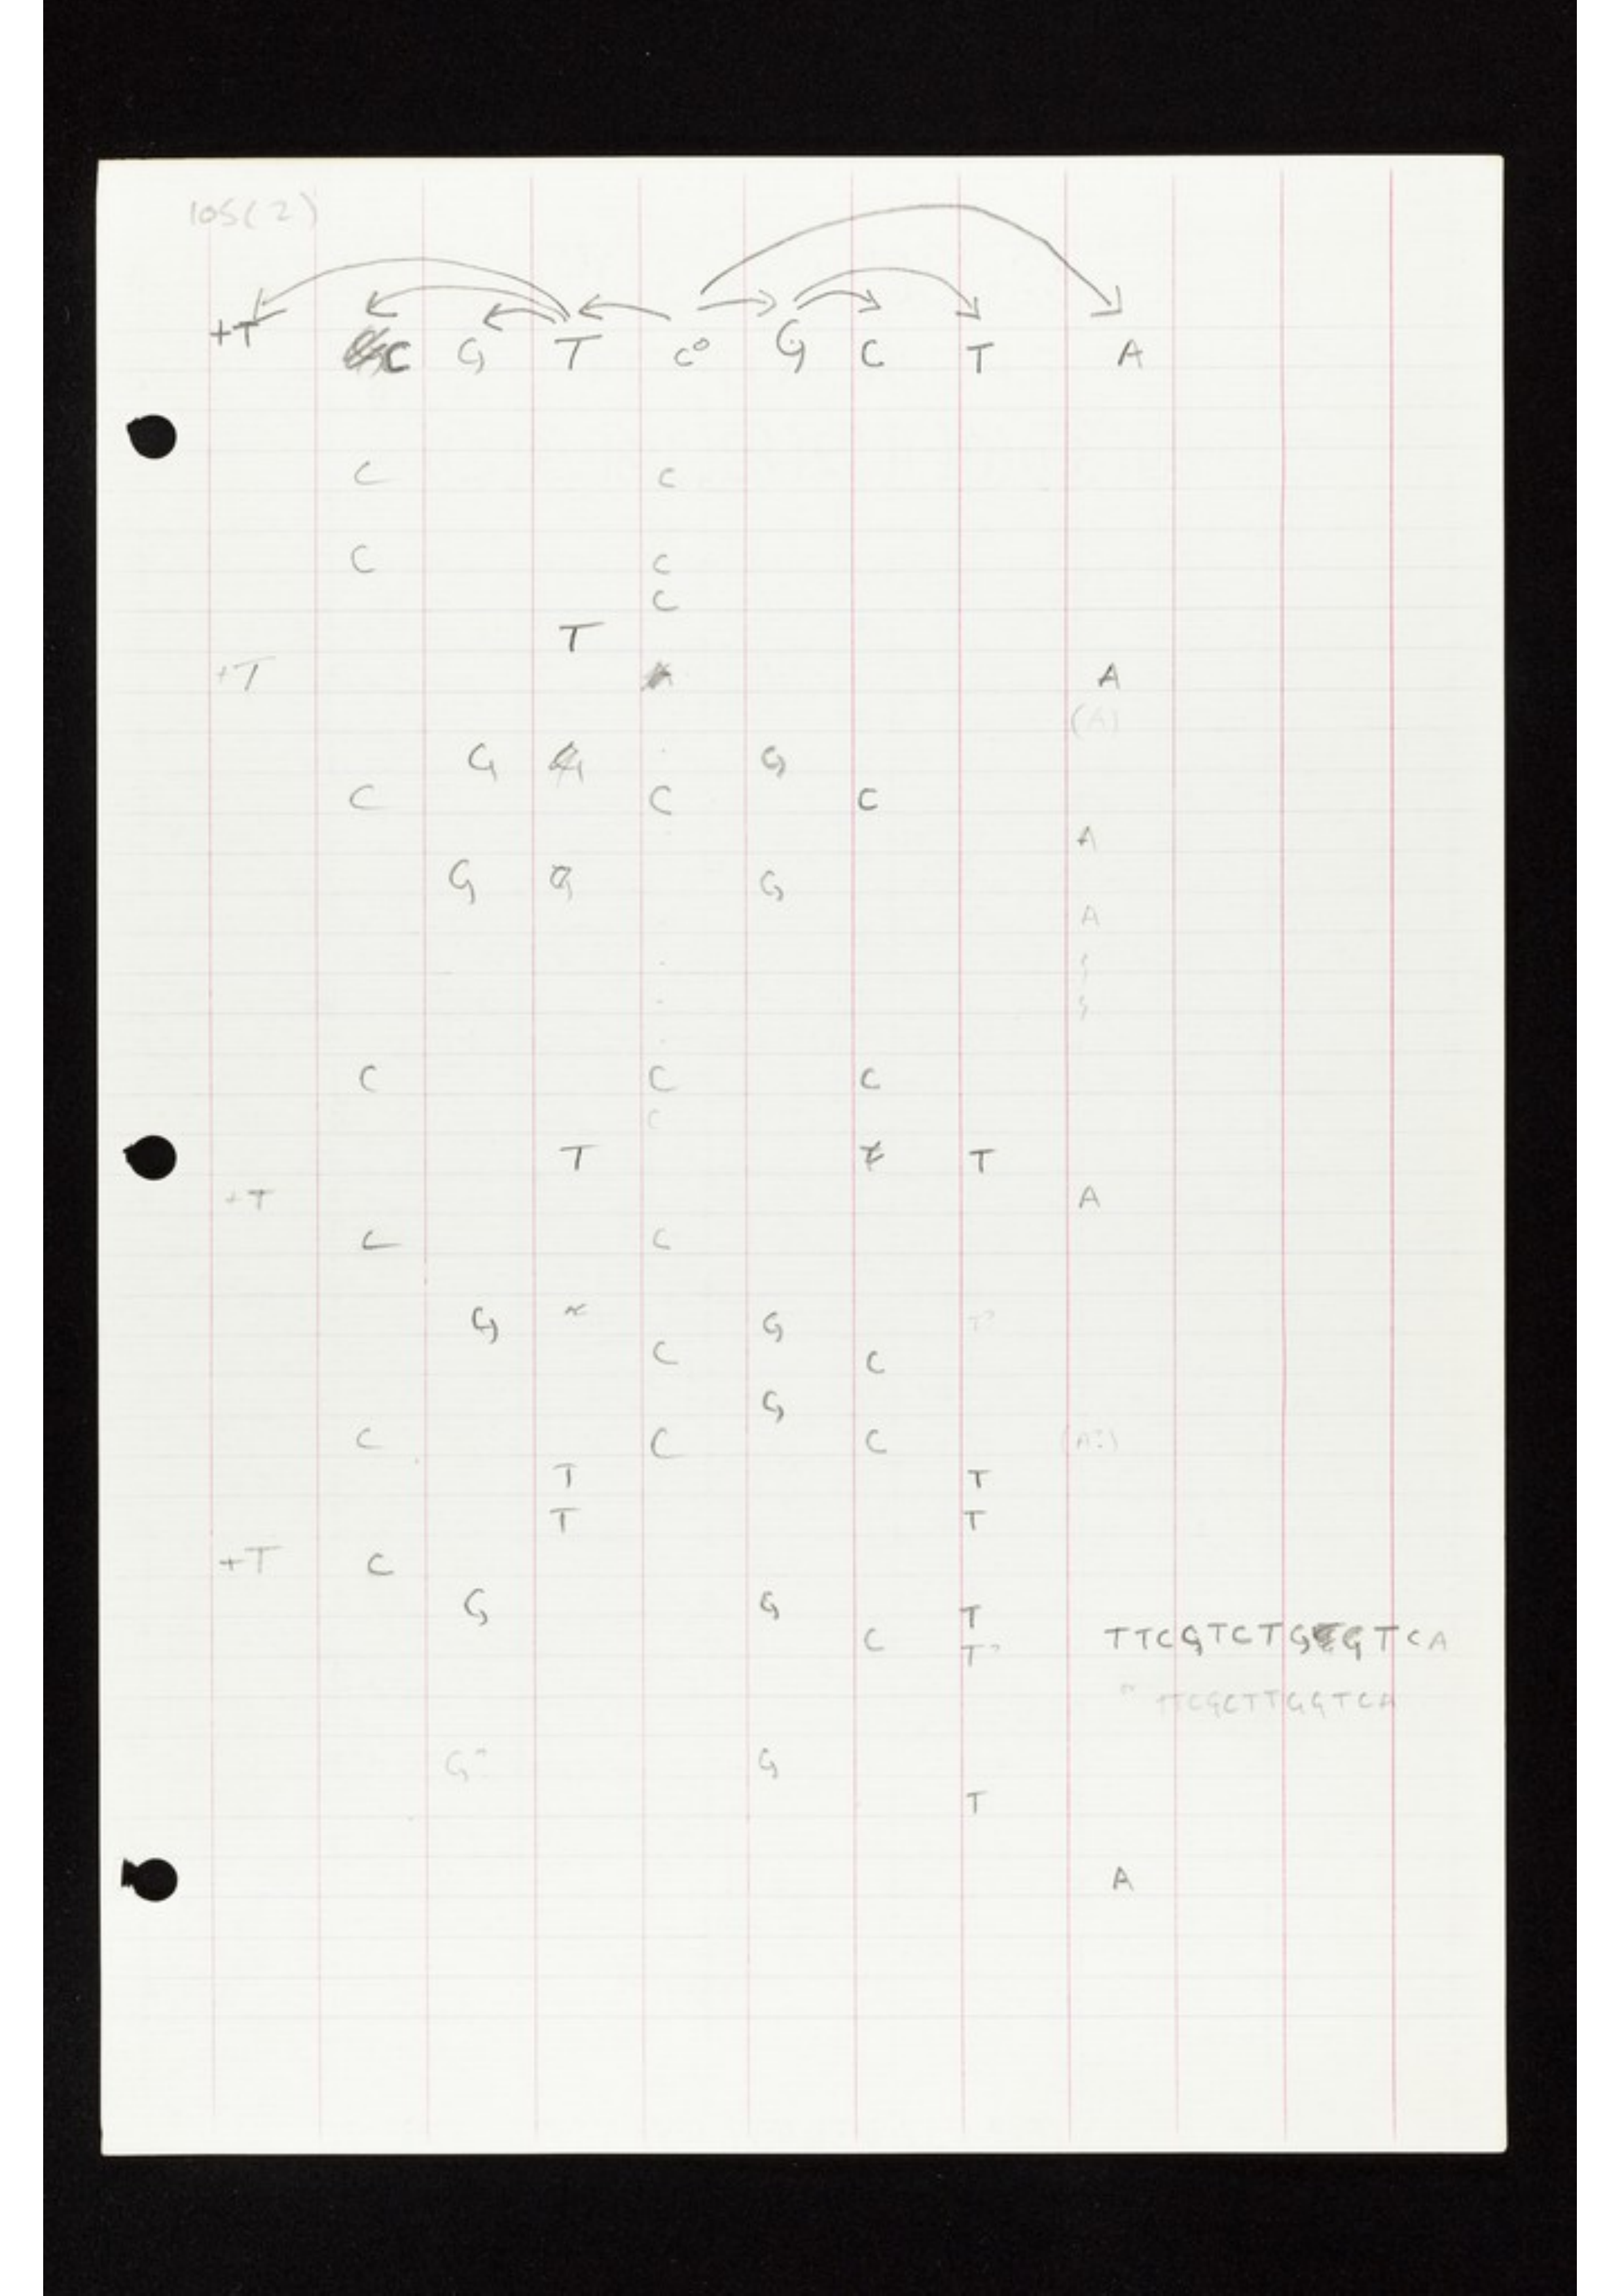 105(2)
+T C G T C° G C T A
C C
C C
C
T
+T A
(A)
G G
C C C
A
G G
A
C C C
C
T T
+T A
C C
G G T?
C C
G
C C C (A?)
T T
T T
+T C
G G T
C T? TTCGTCTG GTCA
TTCGCTTGGTCA
G? G
T
A